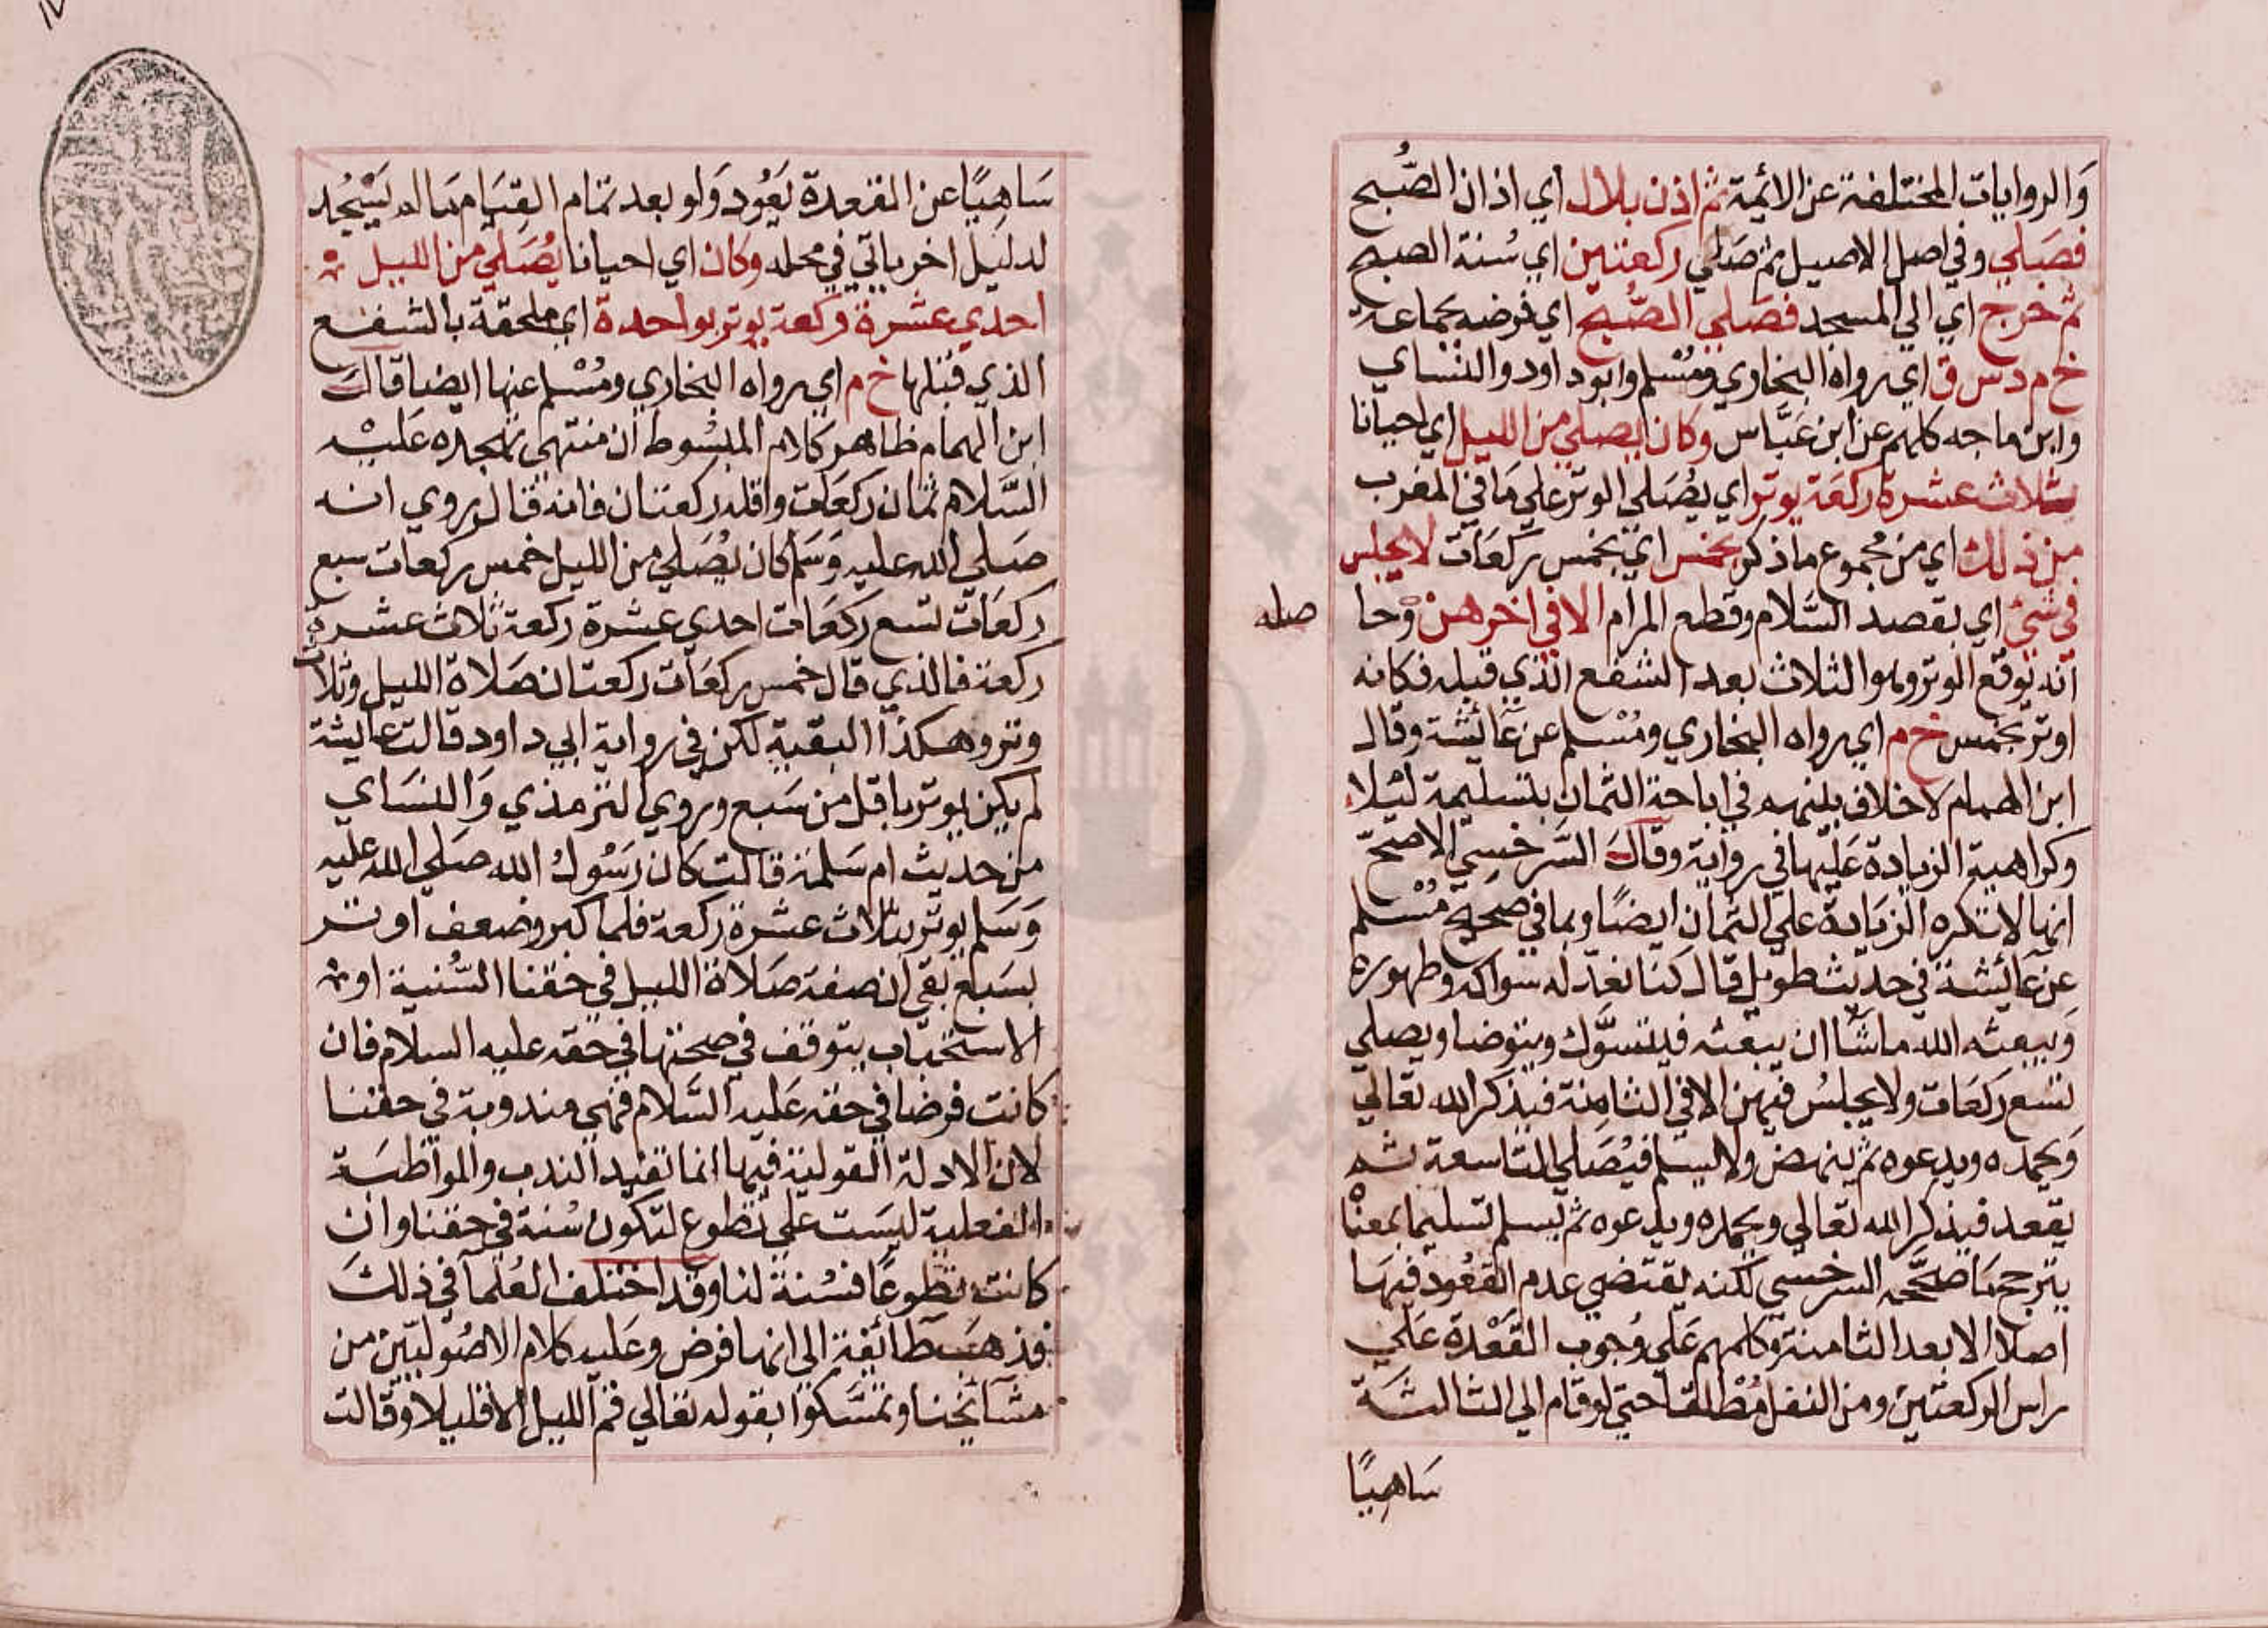 والروايات المختلفة عن الائمة ثم اذن بلال اي اذان الصُّبح
فصَلي وفي اصل الاصيل ثم صَلي ركعتين اي سُنة الصبح
ثم خرج اي الي المسجد فصَلي الصُّبح اي فرضه بجماعة
خ م د س ق اي رواه البخاري ومُسْلم وابو داود والنسَاي
وابن ماجه كلهم عن ابن عَبَّاس وكان يصلي من الليل اي احيانا
ثلاث عشرة ركعَة يوتر اي يُصَلي الوتر علي مَا في المغرب
من ذلك اي من مجموع ماذكر بخمس اي بخمس ركعَات لا يجلس
في شيئ اي بقصد السَّلام وقطع المرام الا في اخرهن وحا
صله
انه يوقع الوتر وهو الثلاث بعد الشفع الذي قبله فكانه
اوتر بخمس خ م اي رواه البخاري ومُسْلم عن عَائشة وقال
ابن الهمام لا خلاف بينهم في اباحة الثمان بتسليمة ليْلا
وكراهية الزيادة عَليها في رواية وقالَ السَّرخسي الاصحّ
انها لا تكره الزيَادة علي الثمان ايضًا وبما في صحيح مُسْلم
عن عَائشة في حديث طويل قال كنا نعدّ له سواكه وطهوره
وَيبعثه الله ماشآ ان يبعثه فيتسوَّك ويتوضا ويصلي
تسع ركعَات ولا يجلسُ فيهن الا في الثامنة فيذكر الله تعالي
وَيحمده ويدعوه ثم ينهض ولا يسلم فيُصَلي التاسعة ثم
يقعد فيذكر الله تعالي ويحمده ويدعوه ثم يسلم تسليما يمعنا
يترجح مَا صحَّحه السرخسي لكنه يقتضي عدم القعُود فيهَا
اصلا الا بعد الثامنة وكلمهم عَلي وُجوب القَعْدة عَلي
راس الركعتين ومن النفل مُطْلقا حتي لو قام الي الثالثَة
سَاهيًا
سَاهيًا عن القعدة يَعُود وَلو بعد تمام القِيَام مَا لم يَسْجُد
لدليل اخر ياتي في محله وكان اي احيانا يُصَلي من الليل
احدي عشرة ركعة يوتر بواحدة اي ملحقة بالشفع
الذي قبلها خ م اي رواه البخاري ومُسْلم عنها ايضا قالَ
ابن الهمام ظاهر كلام المبسُوط ان منتهي تهجده عَليْه
السَّلام ثمان ركعَات واقله ركعتان فانه قال روي انه
صَلي الله عليه وَسَلم كان يُصَلي من الليل خمس ركعات سبع
ركعَات تسع ركعَات احدي عشرة ركعة ثلاث عشرة
ركعة فالذي قال خمس ركعَات ركعتان صَلاة الليل وثلاث
وتر وهكذا البقية لكن في رواية ابي داود قالت عَايشة
لم يكن يوتر باقل من سَبع وروي الترمذي وَالنسَاي
من حديث ام سَلمة قالت كان رَسُول الله صَلي الله عليه
وَسَلم يوتر بثلاث عشرة ركعة فلما كبر وضعف اوتر
بسَبع بقي ان صفة صَلاة الليل في حقنا السُّنية او
الاستحبَاب يتوقف في صحتها في حقه عليه السلام فان
كانت فرضا في حقه عَليه السَّلام فهي مندوبة في حقنا
لان الادلة القولية فيها انما تفيد الندب والمواظبَة
الفعلية ليسَت علي تطوع لتكون سُنة في حقنا وان
كانت تطوعًا فسُنة لنا وقد اختلف العُلمآ في ذلكَ
فذهبَت طَائفة الي انها فرض وعَليه كلام الاصُوليّين من
مشَائخنا وتمسَّكوا بقوله تعالي قم الليل الا قليلا وقالت